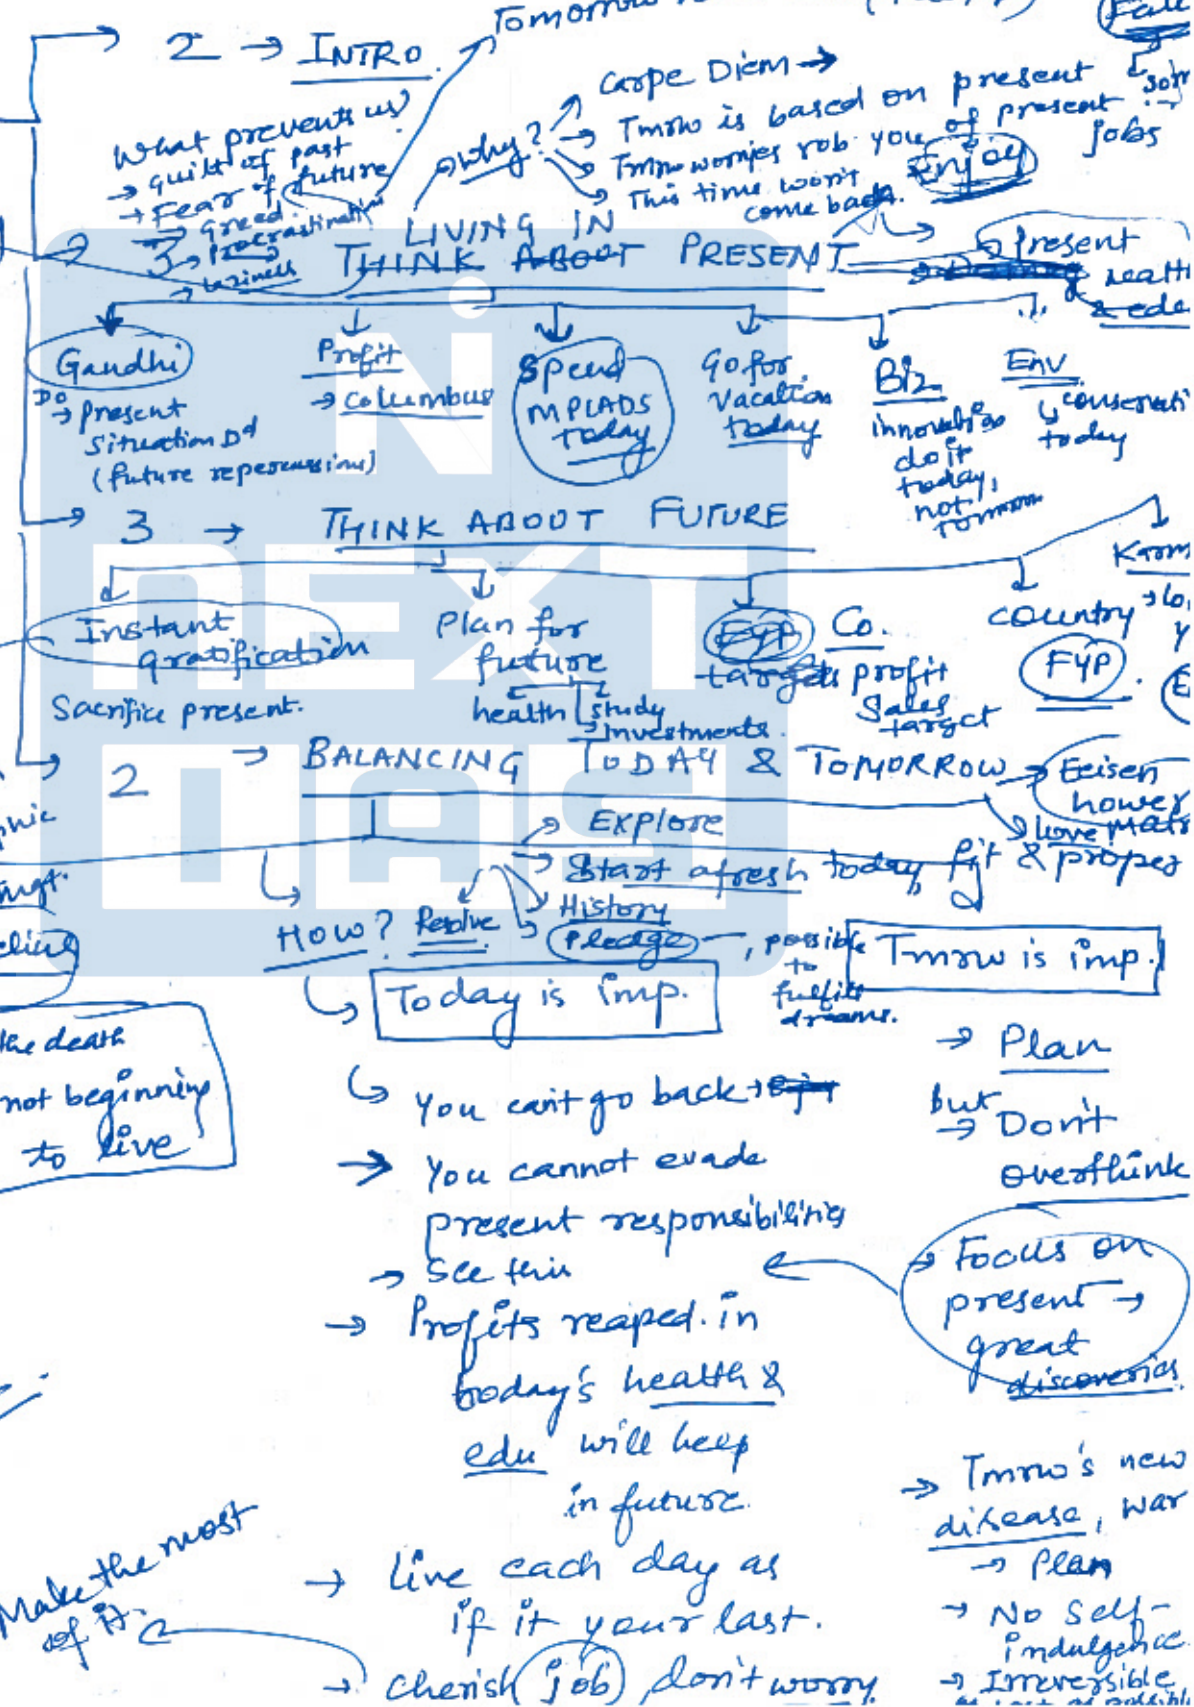 Tomorrow
2 → INTRO
What prevents us?
→ guilt of past
→ Fear of future
→ Greed
→ Procrastination
→ laziness
→ Why?
Carpe Diem →
→ Tmrw is based on present
→ Tmrw worries rob you of present
→ This time won't
come back.
Enjoy
jobs
3
LIVING IN
THINK ABOUT PRESENT
→ Present
& edu
Gandhi
Do
→ present
situation
(future repercussions)
Profit
→ Columbus
Spend
MPLADS
today
Go for
vacation
today
Biz
innovation
do it
today,
not
tomorrow
Env
today
3 → THINK ABOUT FUTURE
Instant
gratification
Sacrifice present.
Plan for
future
health
study
→ Investments.
FYP
targets
Co.
profit
Sales
target
country
FYP.
2 → BALANCING TODAY & TOMORROW
→ Explore
→ Start afresh today,
History
Pledge
possible
to
fulfil
dreams.
HOW?
Resolve
Today is imp.
Tmrw is imp.
the death
not beginning
to live
You can't go back
→ You cannot evade
present responsibilities
→ See this
→ Profits reaped in
today's health &
edu will keep
in future.
→ live each day as
if it your last.
→ cherish job, don't worry
Make the most
of it.
→ Plan
but
→ Don't
overthink
→ Focus on
present →
great
discoveries
→ Tmrw's new
disease, war
→ Plan
→ No self-
indulgence
→ Irreversible
NEXT
IAS